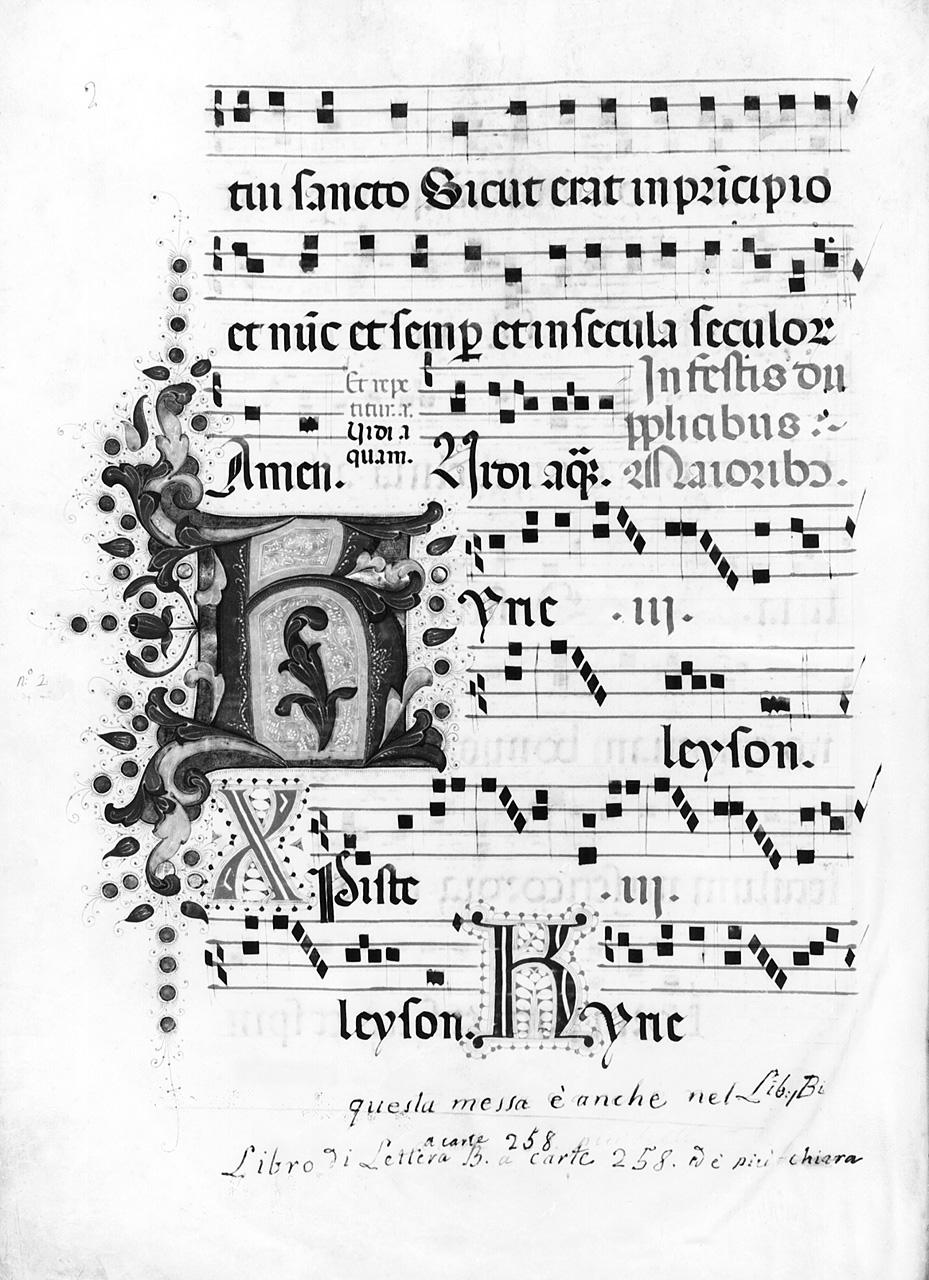 2
tui sancto Sicut erat in pri̅cipio
et nu̅c et semꝑ et in secula seculoꝛ
Et repe
titur.r.
Uidi a
quam.
Amen.
Uidi aq̅ꝫ.
In festis du
pplicibus
Maioribꝫ.
Kyrie .iij.
leyson.
Xpiste .iij.
leyson. Kyrie
questa messa è anche nel Lib: Bi
a carte 258.
Libro di Lettera B. a carte 258. ed è più chiara
n° 2